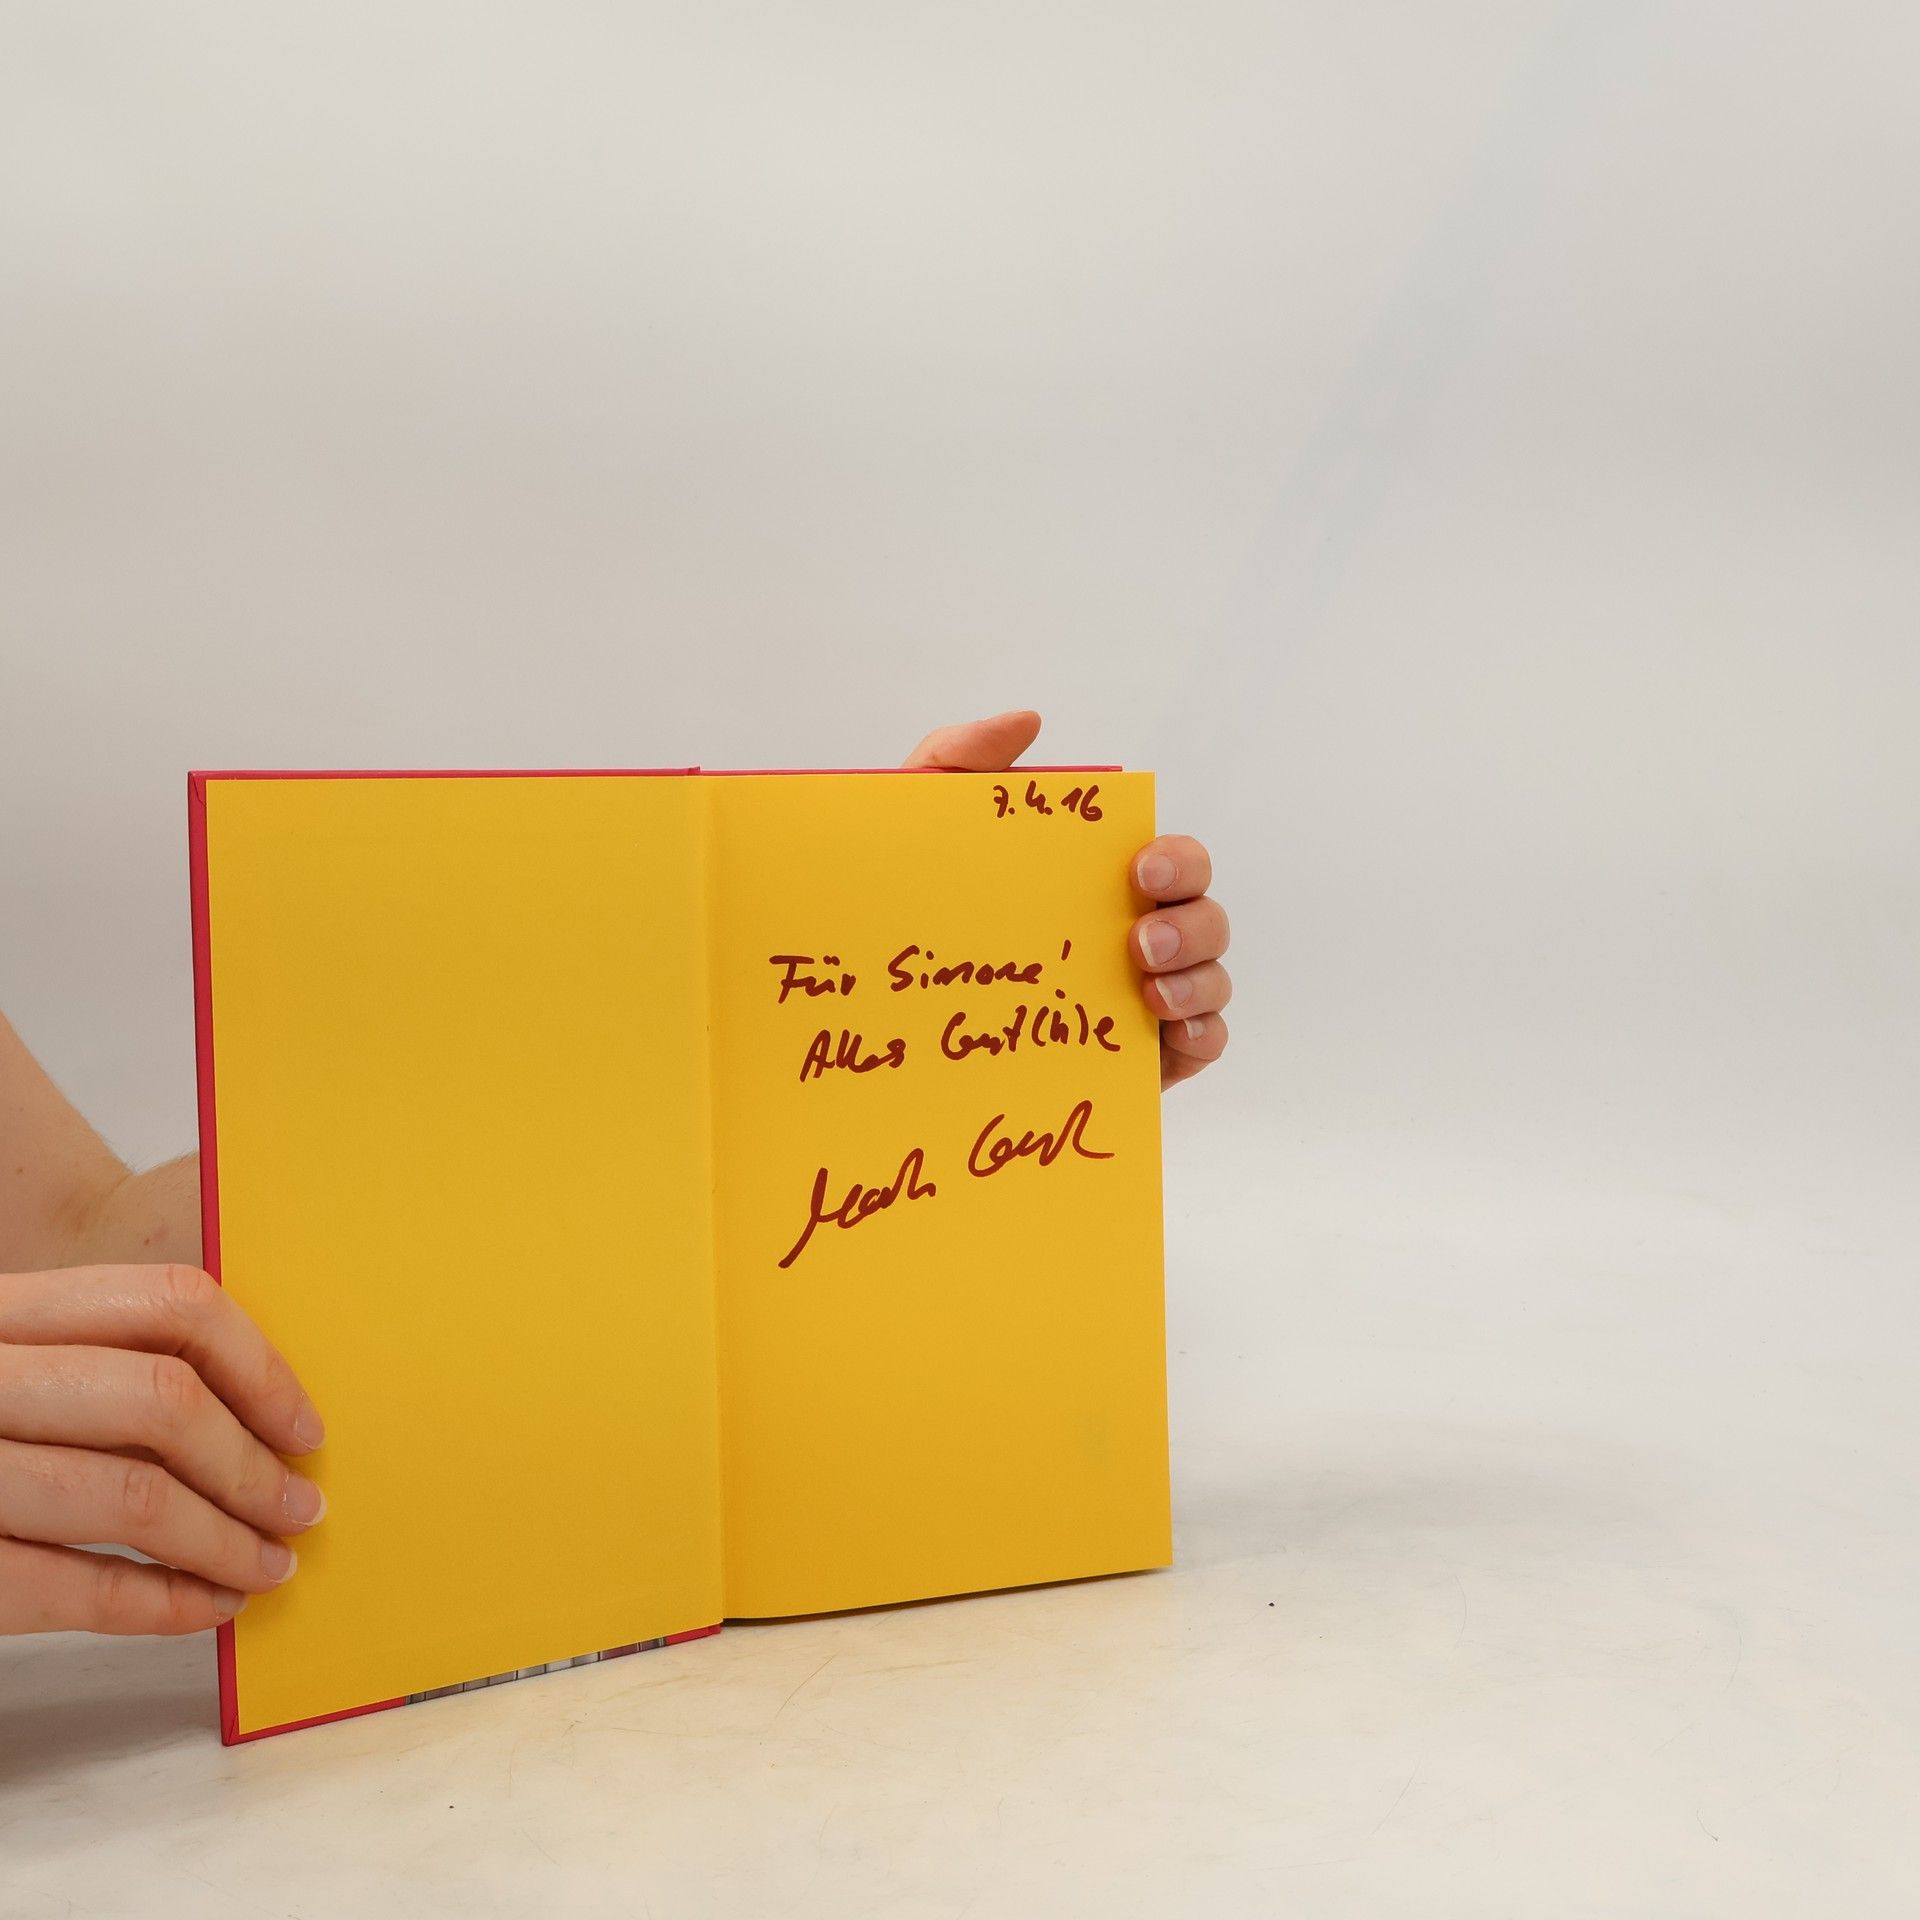 7.4.16
Für Simone!
Alles Gut(h)e